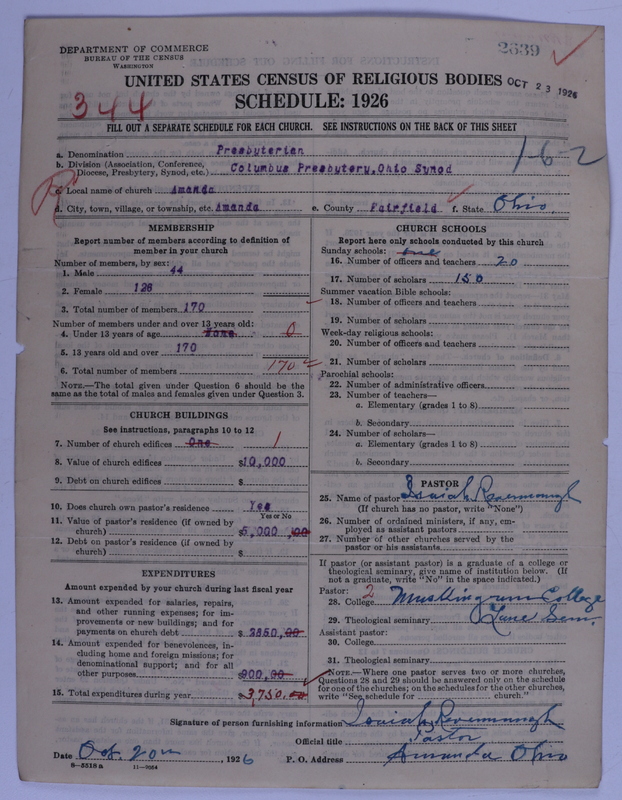 DEPARTMENT OF COMMERCE
BUREAU OF THE CENSUS
WASHINGTON
2639
UNITED STATES CENSUS OF RELIGIOUS BODIES
OCT 23 1926
344
SCHEDULE: 1926
FILL OUT A SEPARATE SCHEDULE FOR EACH CHURCH. SEE INSTRUCTIONS ON THE BACK OF THIS SHEET
a. Denomination Presbyterian
1-62
b. Division (Association, Conference, Diocese, Presbytery, Synod, etc.) Columbus Presbytery, Ohio Synod
c. Local name of church Amanda
d. City, town, village, or township, etc. Amanda e. County Fairfield f. State Ohio
MEMBERSHIP
Report number of members according to definition of
member in your church
Number of members, by sex:
1. Male 44
2. Female 126
3. Total number of members 170
Number of members under and over 13 years old:
4. Under 13 years of age None 0
5. 13 years old and over 170
6. Total number of members 170
NOTE.—The total given under Question 6 should be the
same as the total of males and females given under Question 3.
CHURCH BUILDINGS
See instructions, paragraphs 10 to 12
7. Number of church edifices One 1
8. Value of church edifices $10,000
9. Debt on church edifices $
10. Does church own pastor's residence Yes
Yes or No
11. Value of pastor's residence (if owned by
church) $5,000.00
12. Debt on pastor's residence (if owned by
church) $
EXPENDITURES
Amount expended by your church during last fiscal year
13. Amount expended for salaries, repairs,
and other running expenses; for im-
provements or new buildings; and for
payments on church debt $ 2850.00
14. Amount expended for benevolences, in-
cluding home and foreign missions; for
denominational support; and for all
other purposes 900.00
15. Total expenditures during year $3,750.00
CHURCH SCHOOLS
Report here only schools conducted by this church
Sunday schools: One
16. Number of officers and teachers 20
17. Number of scholars 150
Summer vacation Bible schools:
18. Number of officers and teachers
19. Number of scholars
Week-day religious schools:
20. Number of officers and teachers
21. Number of scholars
Parochial schools:
22. Number of administrative officers
23. Number of teachers—
a. Elementary (grades 1 to 8)
b. Secondary
24. Number of scholars—
a. Elementary (grades 1 to 8)
b. Secondary
PASTOR
25. Name of pastor Isaiah Revennaugh
(If church has no pastor, write "None")
26. Number of ordained ministers, if any, em-
ployed as assistant pastors
27. Number of other churches served by the
pastor or his assistants
If pastor (or assistant pastor) is a graduate of a college or
theological seminary, give name of institution below. (If
not a graduate, write "No" in the space indicated.)
Pastor: 2
28. College Muskingum College
29. Theological seminary Lane Sem.
Assistant pastor:
30. College
31. Theological seminary
NOTE.—Where one pastor serves two or more churches,
Questions 28 and 29 should be answered only on the schedule
for one of the churches; on the schedules for the other churches,
write "See schedule for church."
Signature of person furnishing information Isaiah Revennaugh
Official title Pastor
Date Oct. 20th, 1926 P. O. Address Amanda Ohio
8—5518 a 11—9054